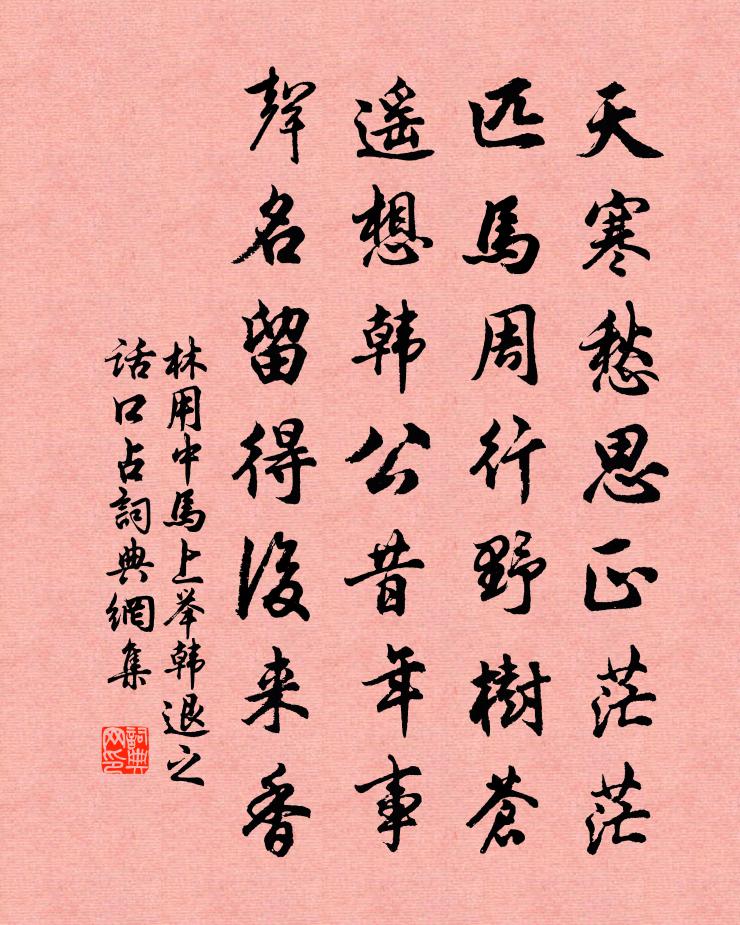 天寒愁思正茫茫
匹馬周行野樹蒼
遥想韩公昔年事
聲名留得後来香
林用中馬上举韩退之
话口占詞典網集
詞典网印